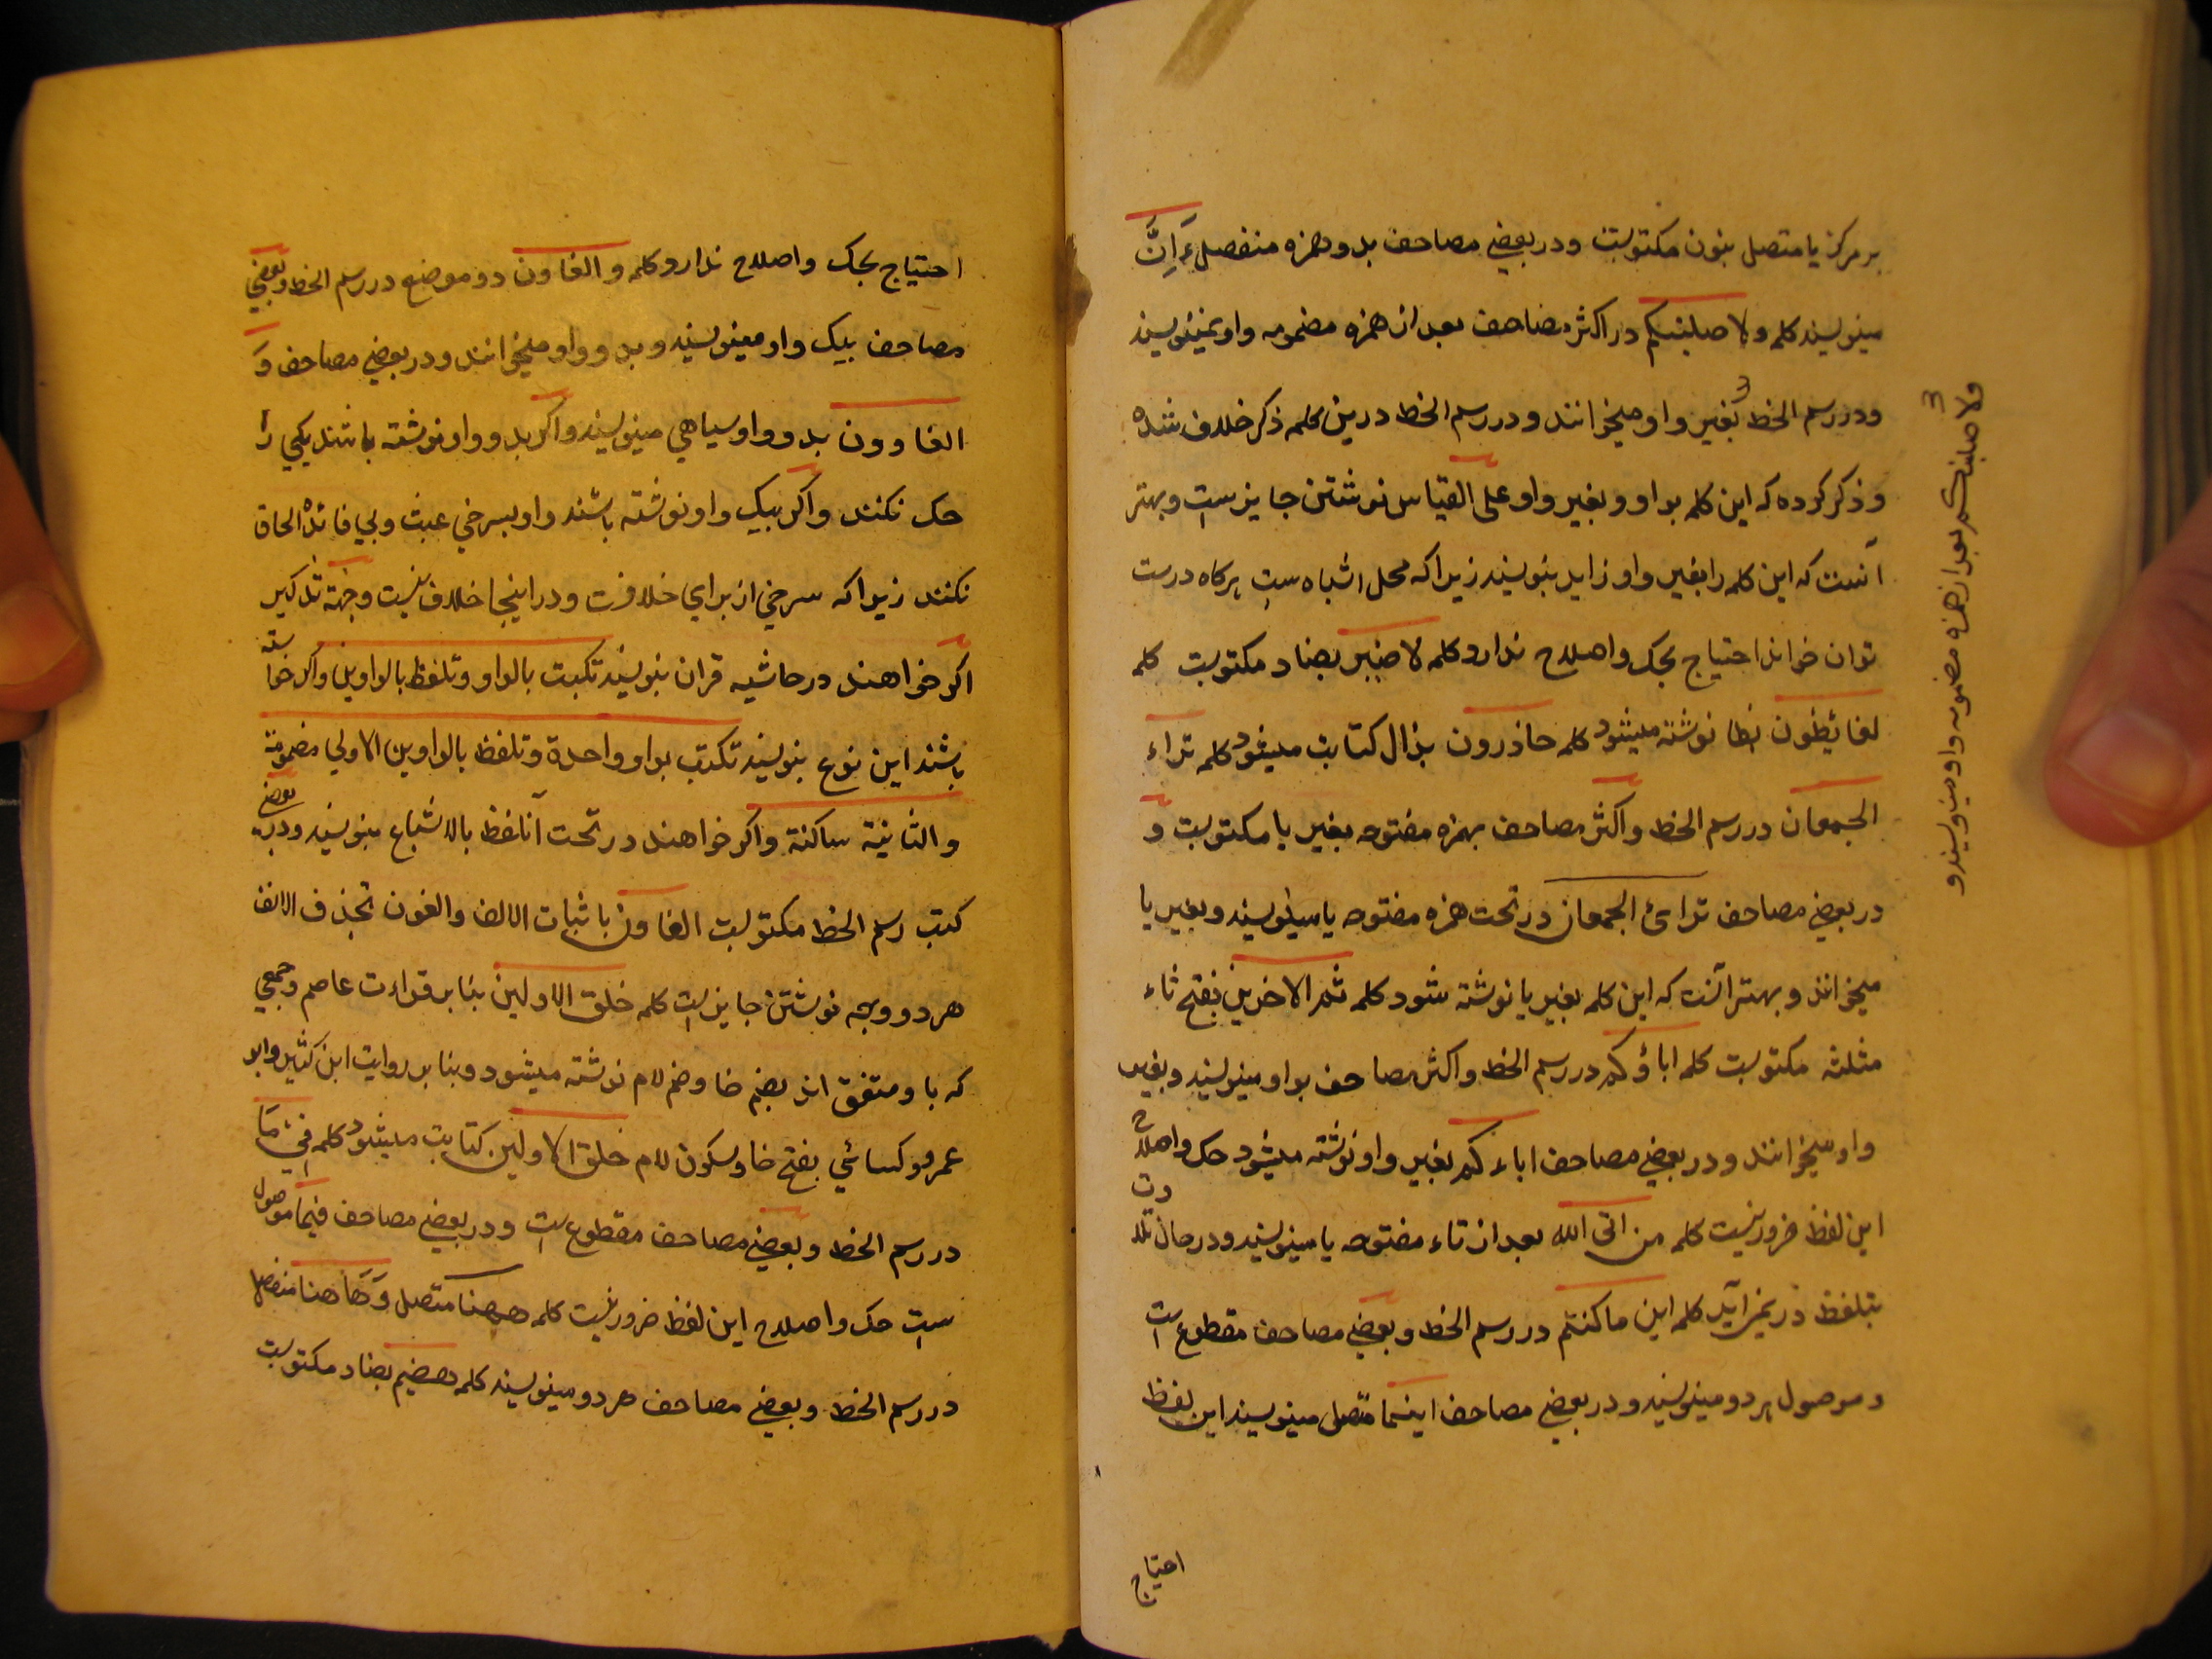 بر مرکز یا متصل بنون مکتوبست و در بعضی مصاحف بدو همزه منفصل ءَاِنَّ
مینویسند کلمه ولاصلبنکم در اکثر مصاحف بعد از همزه مضمومه واو نمینویسند
و در رسم الخط بغیر واو میخوانند و در رسم الخط درین کلمه ذکر خلاف شده
و ذکر کرده که این کلمه بواو و بغیر واو علی القیاس نوشتن جایزست و بهتر
آنست که این کلمه را بغیر واو زاید بنویسند زیرا که محل اشباه ست هرکاه درست
توان خواند احتیاج بحک و اصلاح ندارد کلمه لا ضیر بضاد مکتوبست کلمه
لغائظون بظا نوشته میشود کلمه حاذرون بذال کتابت میشود کلمه تراء
الجمعان در رسم الخط و اکثر مصاحف بهمزه مفتوحه بغیر یا مکتوبست و
در بعضی مصاحف ترائ الجمعان در تحت همزه مفتوحه یا مینویسند و بغیر یا
میخوانند و بهتر آنست که این کلمه بغیر یا نوشته شود کلمه ثم الاخرین بفتح ثاء
مثلثه مکتوبست کلمه اباؤکم در رسم الخط و اکثر مصاحف بواو مینویسند و بغیر
واو میخوانند و در بعضی مصاحف اباءکم بغیر واو نوشته میشود حک و اصلاح
این لفظ ضرور نیست کلمه من اتی الله بعد از تاء مفتوحه یا مینویسند و در حال تلاوت
بتلفظ در نمی آید کلمه این ما کنتم در رسم الخط و بعضی مصاحف مقطوع است
و موصول هر دو مینویسند و در بعضی مصاحف اینما متصل مینویسند این لفظ
احتیاج
ولاصلبنکم بعد از همزه مضمومه واو مینویسند و
احتیاج بحک و اصلاح ندارد کلمه والغاون دو موضع در رسم الخط و بعضی
مصاحف بیک واو مینویسند و بدو واو میخوانند و در بعضی مصاحف وَ
الغاوون بدو واو سیاهی مینویسند و اکر بدو واو نوشته باشند یکی را
حک نکنند و اکر بیک واو نوشته باشند واو بسرخی عبث و بی فائده الحاق
نکنند زیرا که سرخی از برای خلافست و در اینجا خلاف نیست و جهة تذکیر
اکر خواهند در حاشیه قران بنویسند تکتب بالواو و تلفظ بالواوین و اکر خواسته
باشند این نوع بنویسند تکتب بواو واحدة و تلفظ بالواوین الاولی مضمومة
والثانیة ساکنة و اکر خواهند در تحت آن لفظ بالاشباع بنویسند و در بعضی
کتب رسم الخط مکتوبست الغاون باثبات الالف والغون بحذف الالف
هر دو وجه نوشتن جایزست کلمه خلق الاولین بنا بر قراءت عاصم و جمعی
که با و متفق اند بضم خا و ضم لام نوشته میشود و بنا بر روایت ابن کثیر و ابو
عمرو و کسائی بفتح خا و سکون لام خلق الاولین کتابت میشود کلمه فِی مَا
در رسم الخط و بعضی مصاحف مقطوع ست و در بعضی مصاحف فیما موصول
ست حک و اصلاح این لفظ ضرور نیست کلمه ههنا متصل وَ هَا هنا منفصل
در رسم الخط و بعضی مصاحف هر دو مینویسند کلمه هضیم بضاد مکتوبست